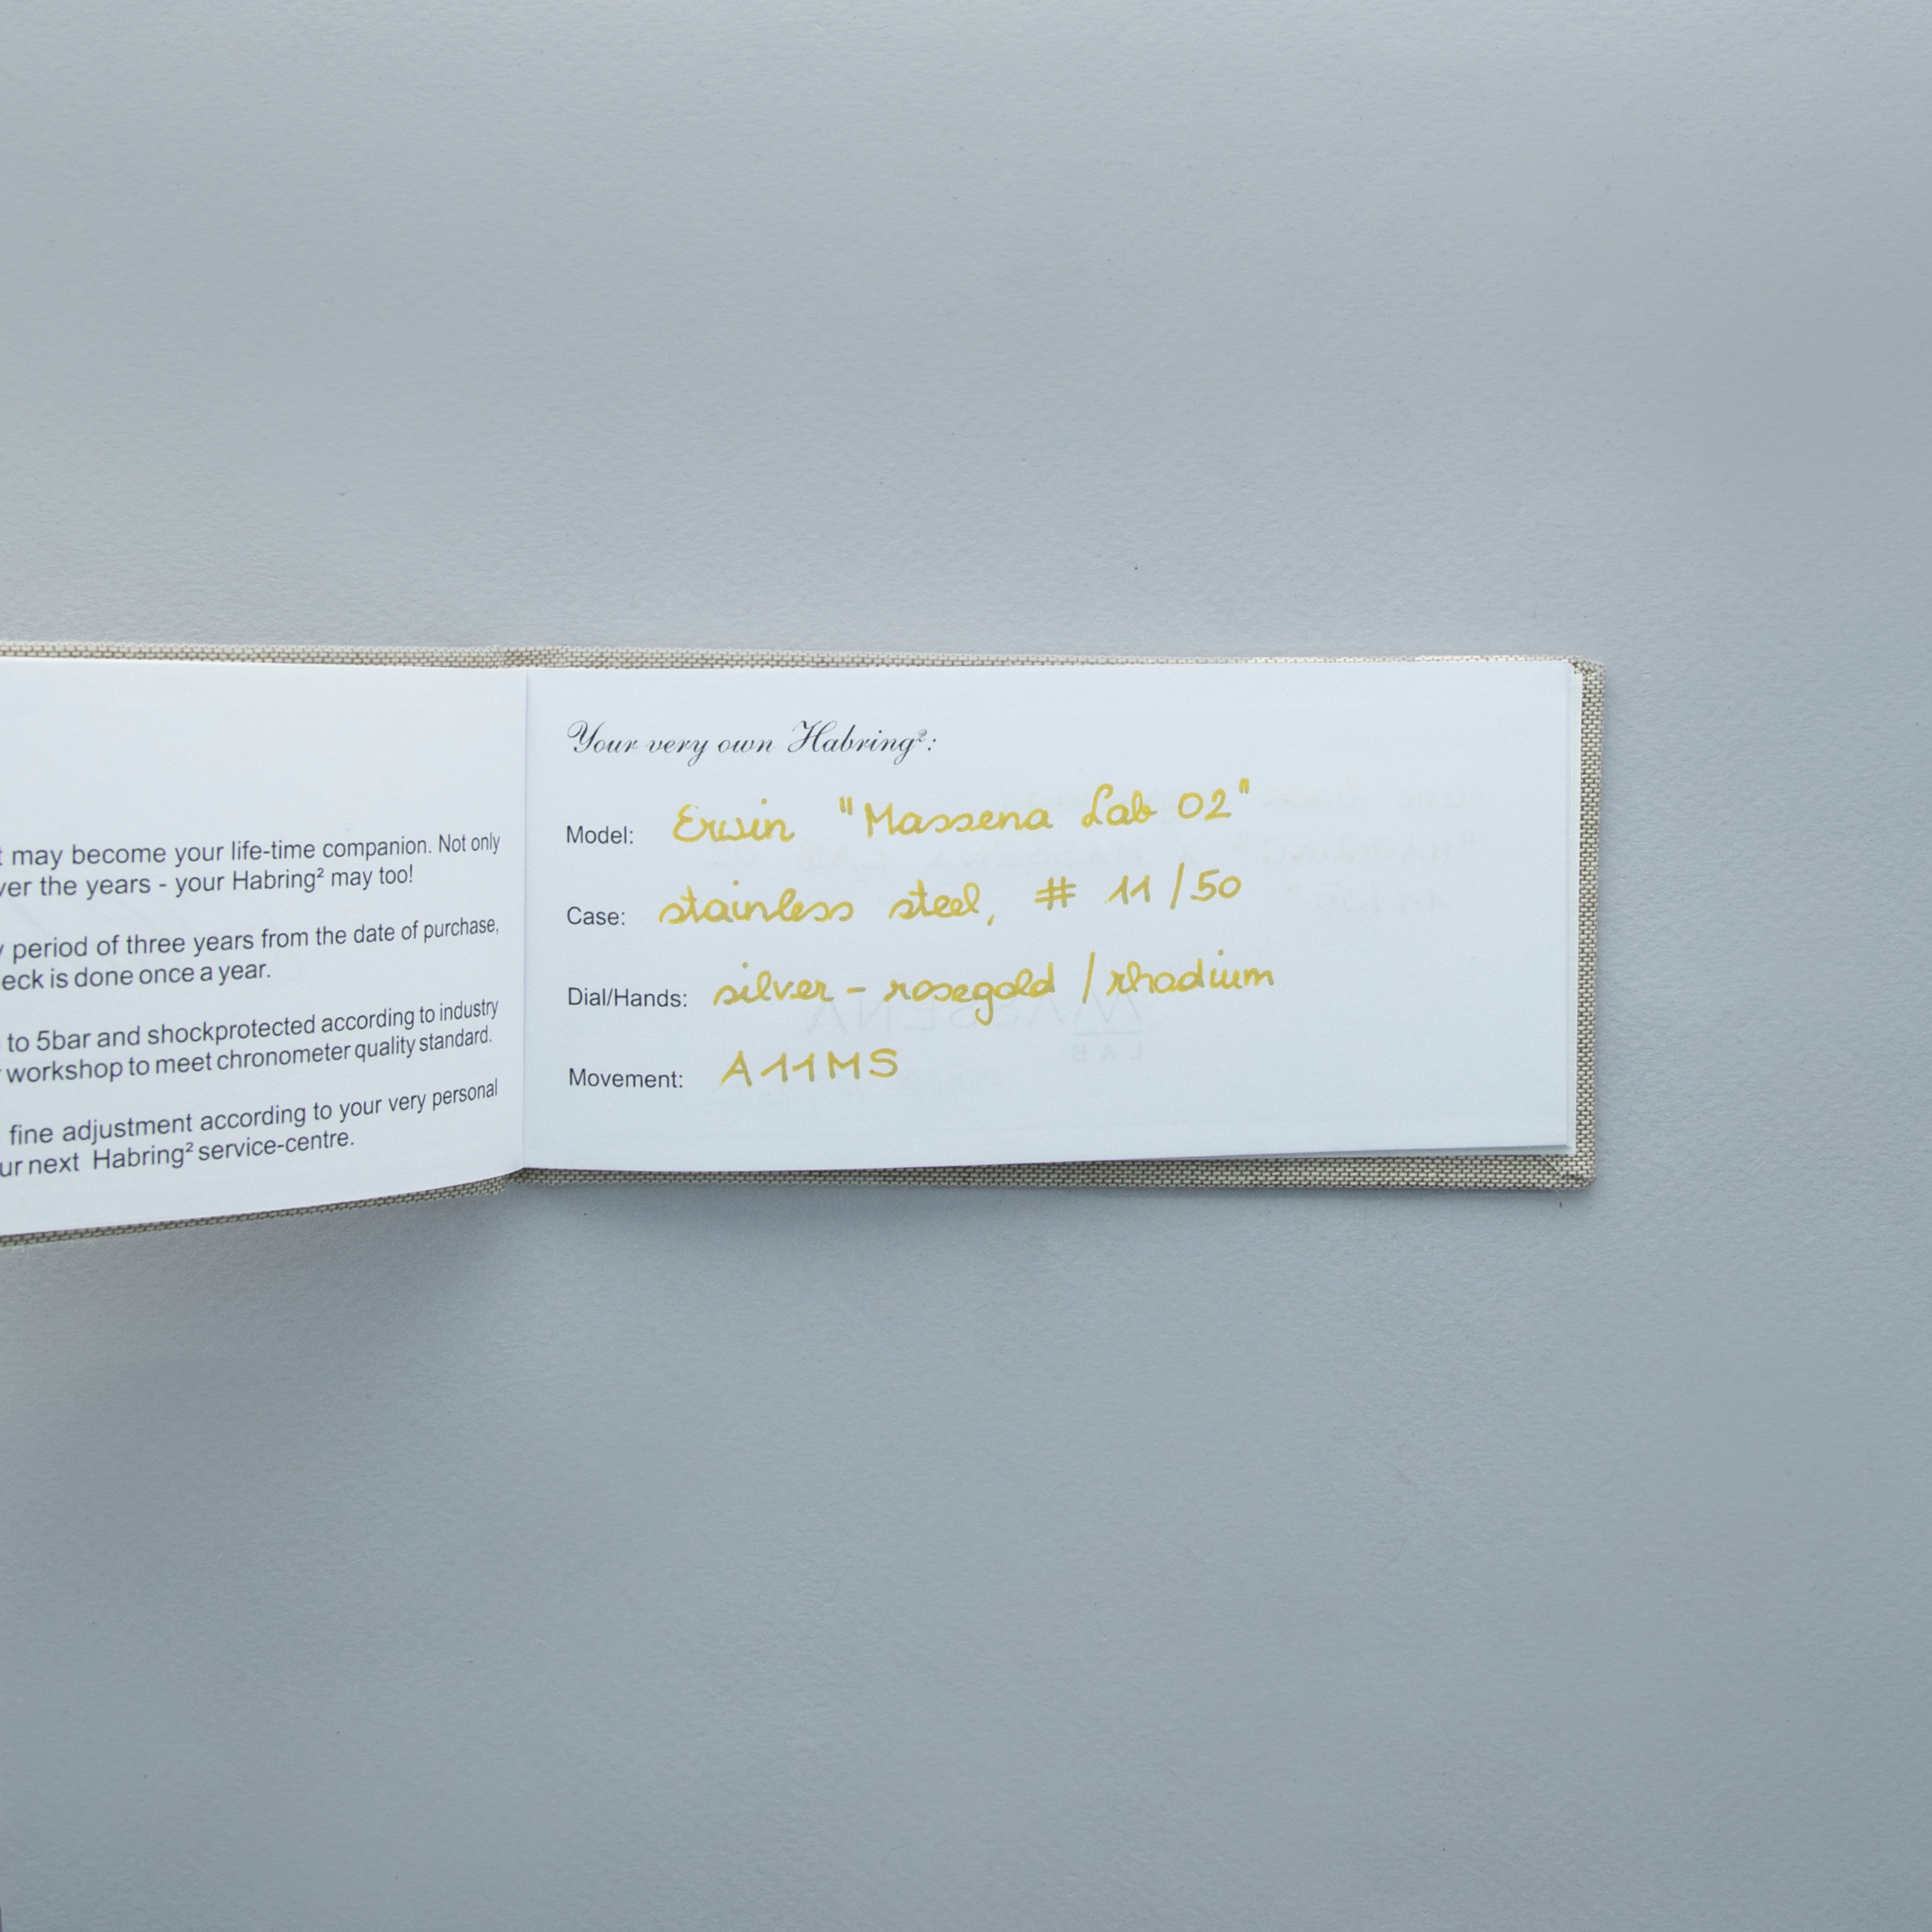 may become your life-time companion. Not only
the years - your Habring² may too!
period of three years from the date of purchase,
is done once a year.
to 5bar and shockprotected according to industry
workshop to meet chronometer quality standard.
fine adjustment according to your very personal
next Habring² service-centre.
Your very own Habring²:
Model: Erwin "Massena Lab 02"
Case: stainless steel, # 11/50
Dial/Hands: silver - rosegold / rhodium
Movement: A11MS